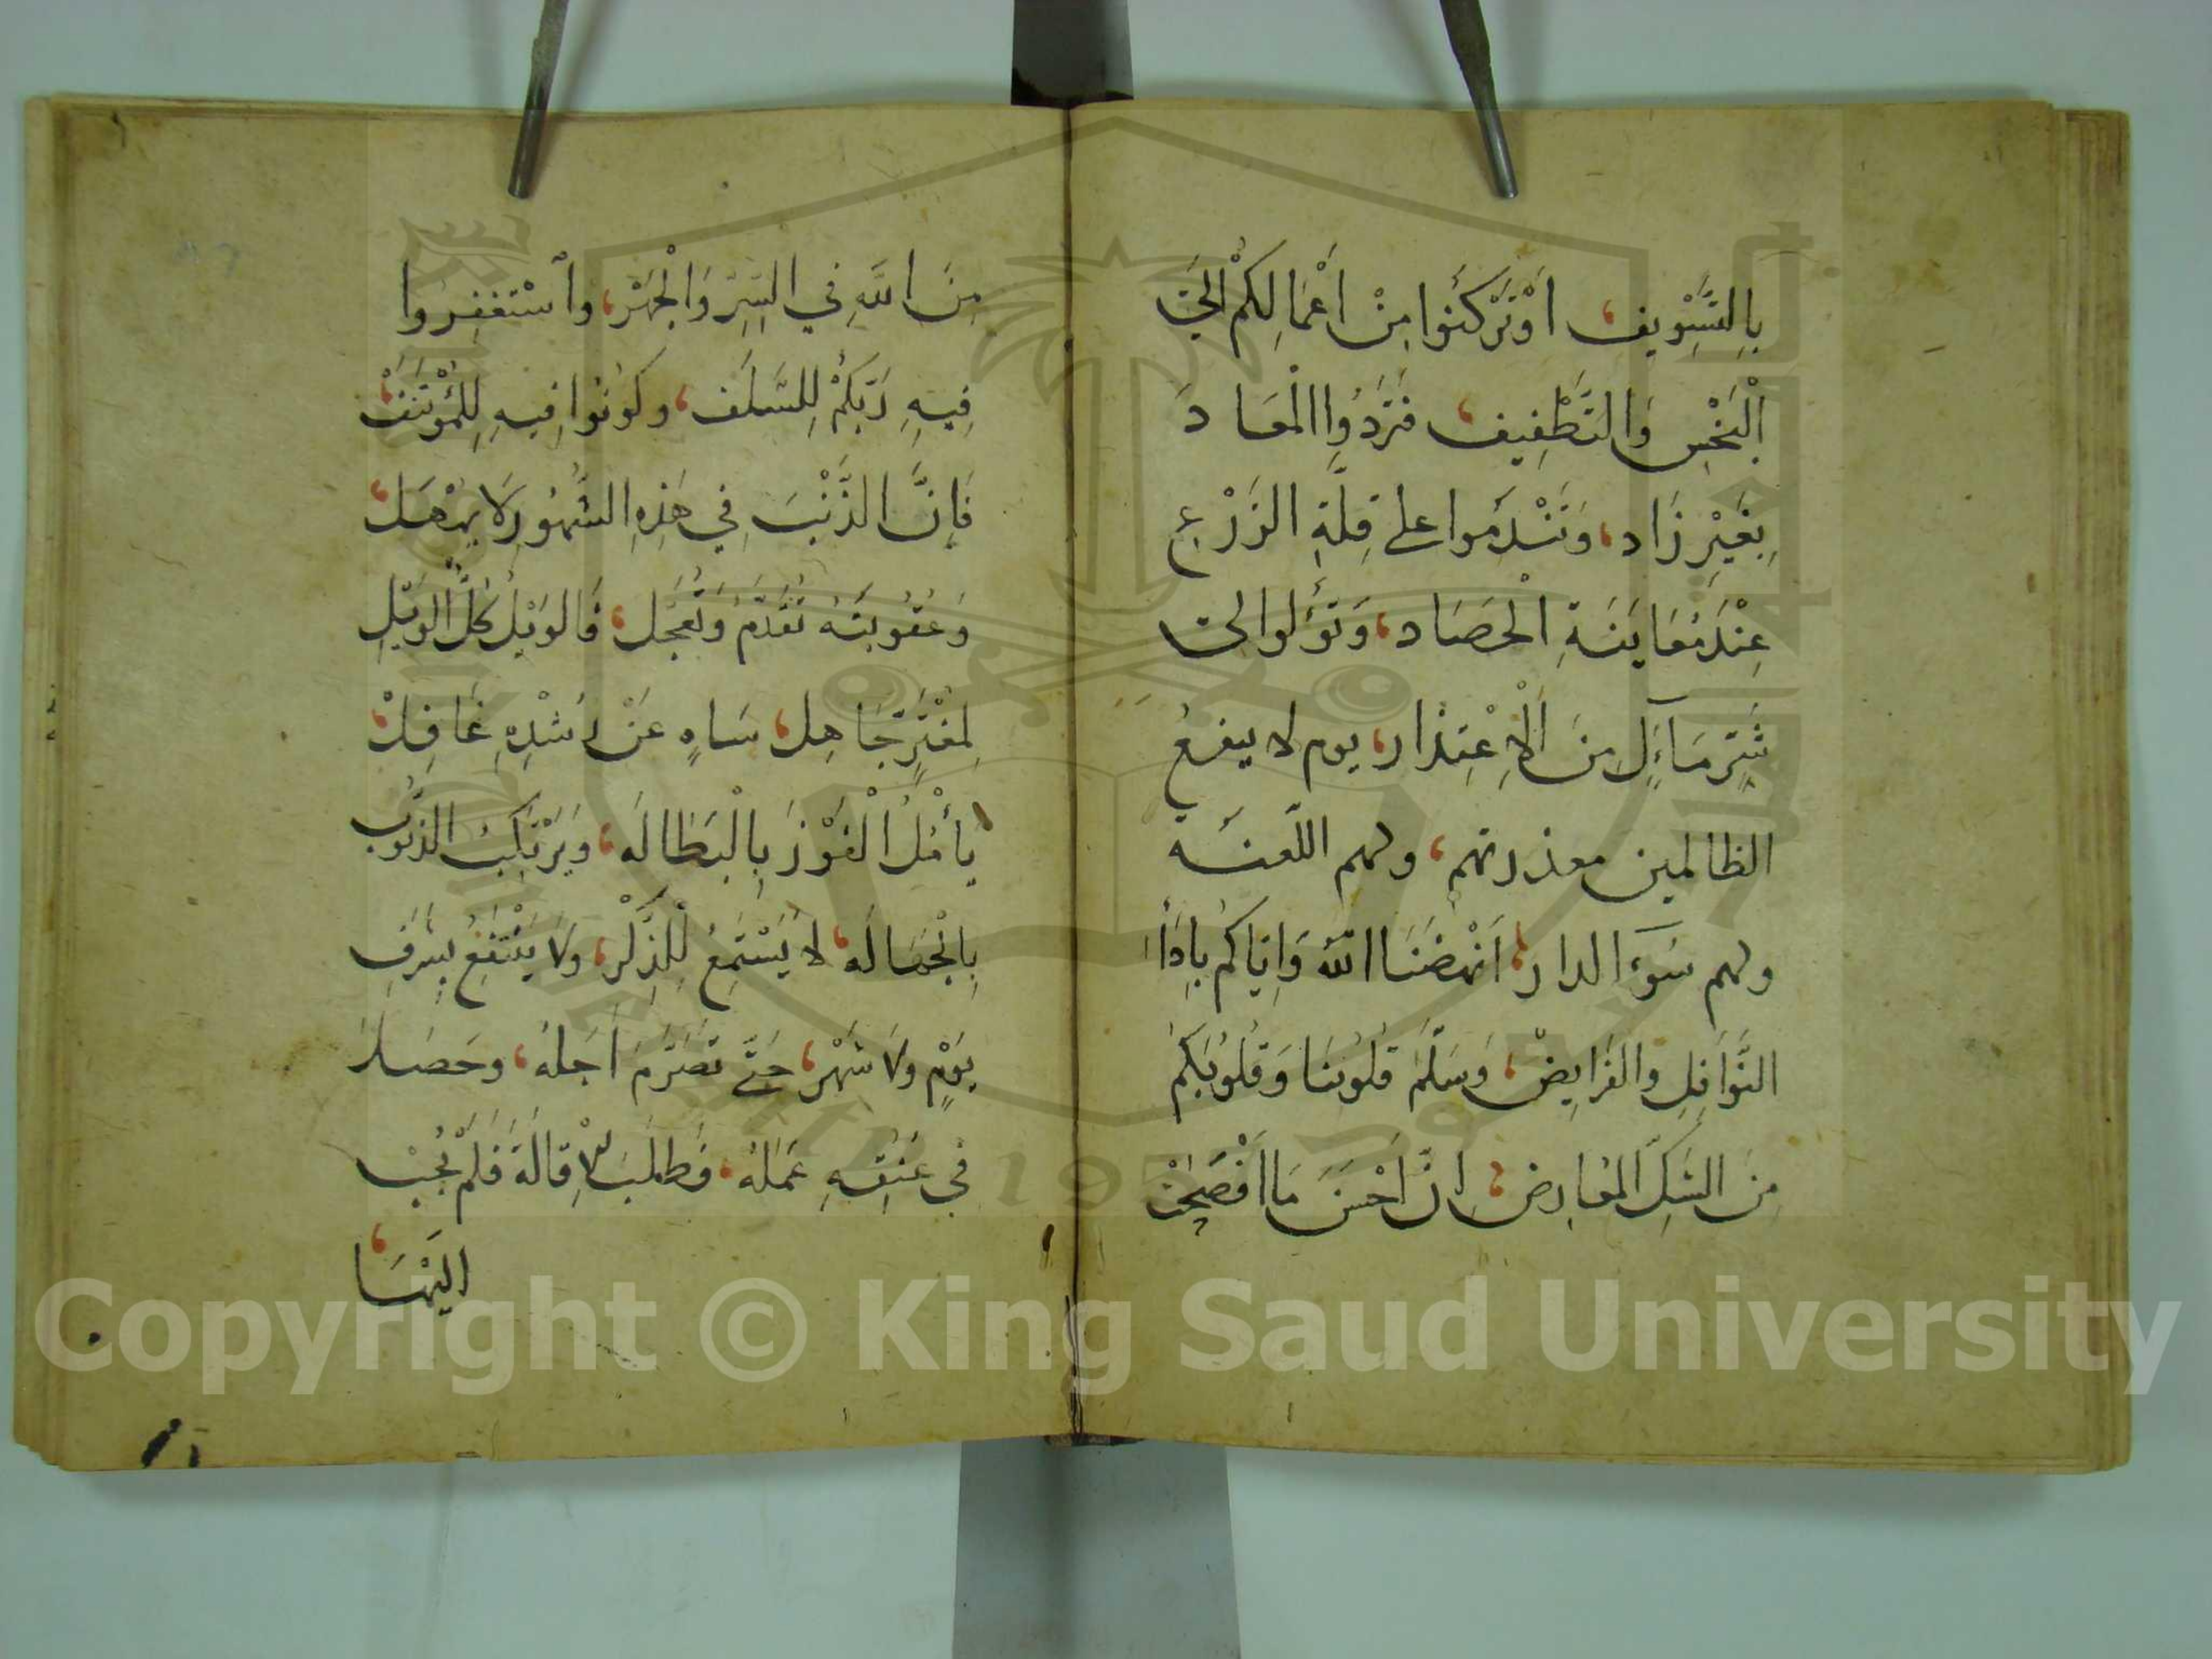 بِالتَّسْوِيفِ، اَوْ تَرْكَنُوا مِنْ اَعْمَالِكُمْ اِلَى
اَلْبَخْسِ وَالتَّطْفِيفِ، فَتَرِدُوا الْمَعَادَ
بِغَيْرِ زَاد، وَتَنْدَمُوا على قِلَّةِ الزَّرْعِ
عِنْدَ مُعَايَنَةِ الْحَصَاد، وَتَؤُلوا الى
شَرِّ مَآءَلٍ مِنَ الْاِعْتِذَار، يوم لا ينفعُ
الظالمين معذرتهم، ولهم اللعنَة
ولهم سُوٓء الدار، اَنْهَضَنَا اللهُ وَاِيَّاكُم بِاَدَاءِ
النَّوَافِلِ والفَرَايِضْ، وَسَلَّمَ قُلُوبَنَا وَقُلُوبَكُمْ
مِنَ الشَّكِّ المُعَارِض، اِنَّ اَحْسَنَ مَا اَفْصَحَتْ
مِنَ اللهِ فِي السِّرِّ وَالْجَهْرْ، واسْتَغْفِرُوا
فِيهِ رَبَّكُمْ لِلسَّلَفْ، وكُونُوا فِيهِ لِلْمُؤْتَنَفْ
فَاِنَّ الذَّنْبَ فِي هَذِهِ الشُّهُورِ لَا يُمْهَلْ
وَعُقُوبَتَهُ تُقَدَّمُ وَتُعَجَّل، فَالوَيْلُ كُلُّ الوَيْلِ
لِمُغْتَرٍّ جَاهِل، سَاهٍ عَنْ رُشْدِهِ غَافِلْ
يَأْمُلُ الْفَوْزَ بِالْبَطَالَه، وَيَرْتَكِبُ الذُّنُوب
بِالْجَهَالَه، لا يَسْتَمِعُ لِلذِّكْر، ولَا يَنْتَفِعُ بِشَرَفِ
يَوْمٍ ولَا شَهْر، حَتَّى تَصَرَّمَ اَجَلُهُ، وحَصَلَ
فِي عُنُقِهِ عَمَلُهُ، فَطَلَبَ الْاِقالَةَ فَلَمْ يُجَبْ
اِلَيْهَا
Copyright © King Saud University